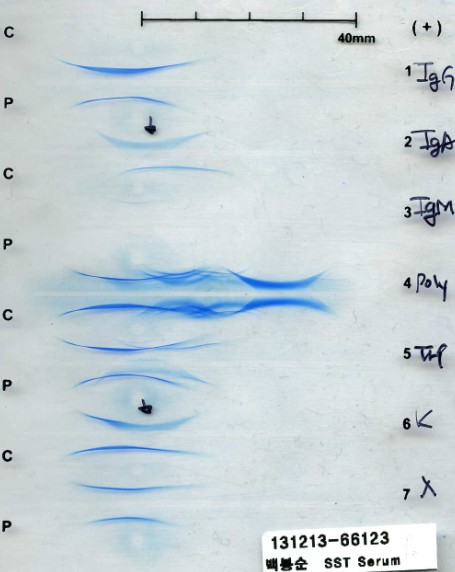 C
40mm
(+)
1 IgG
P
2 IgA
C
3 IgM
P
4 Poly
C
5 Trp
P
6 K
C
7 λ
P
131213-66123
백봉순 SST Serum